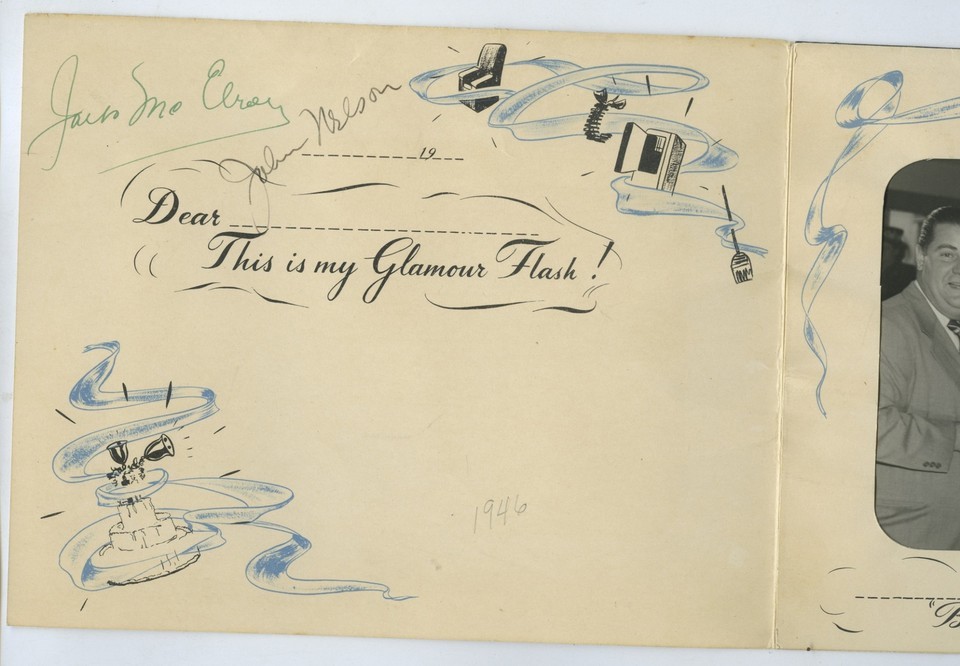 Jack Mc Elroy
John Nelson
19
Dear
This is my Glamour Flash!
1946
"B